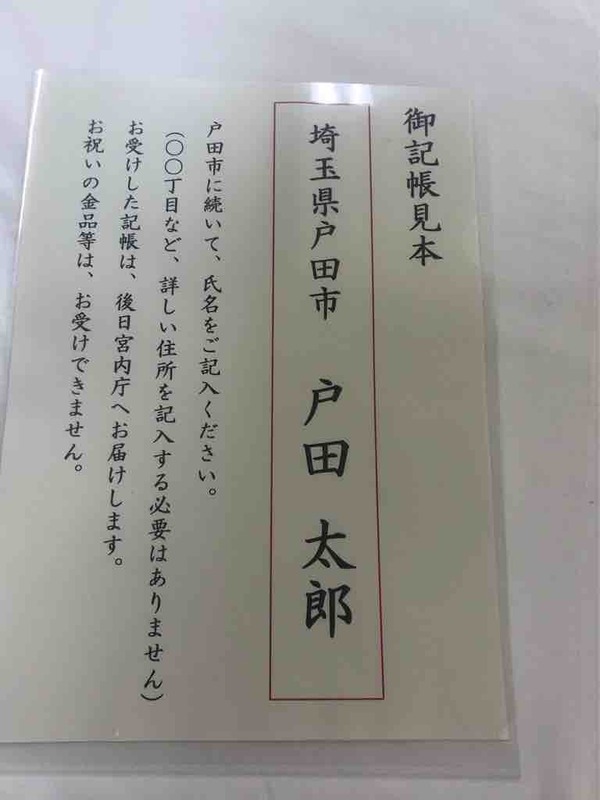 御記帳見本
埼玉県戸田市　戸田　太郎
戸田市に続いて、氏名をご記入ください。
（〇〇丁目など、詳しい住所を記入する必要はありません）
お受けした記帳は、後日宮内庁へお届けします。
お祝いの金品等は、お受けできません。